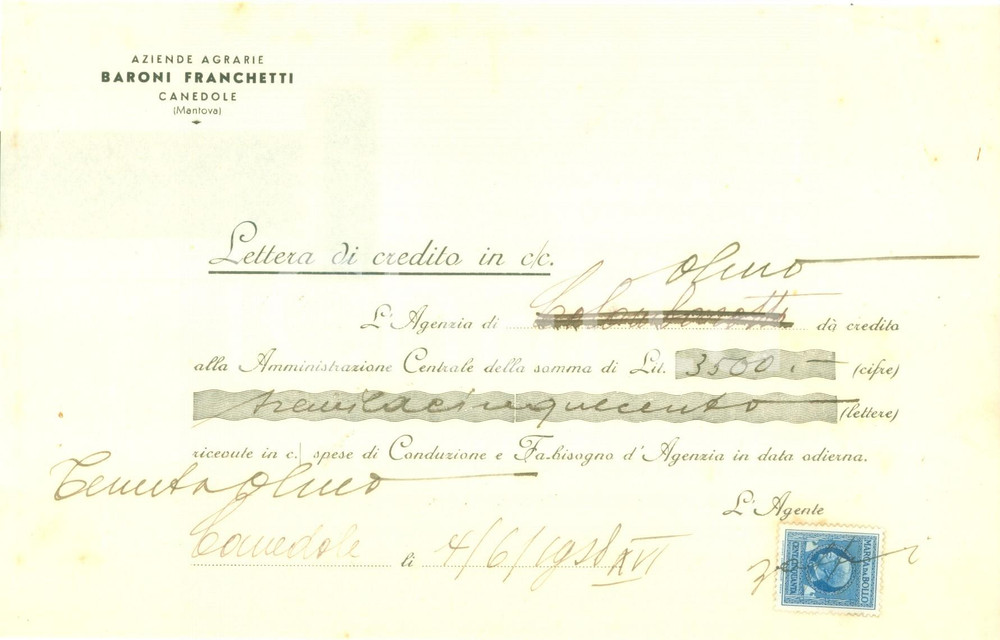 AZIENDE AGRARIE
BARONI FRANCHETTI
CANEDOLE
(Mantova)
Lettera di credito in c/c.
Olmo
L'Agenzia di dà credito
alla Amministrazione Centrale della somma di Lit. 3500.— (cifre)
tremilacinquecento (lettere)
ricevute in c. spese di Conduzione e Fa-bisogno d'Agenzia in data odierna.
Tenuta Olmo
L'Agente
Canedole li 4/6/1938 XVI
MARCA DA BOLLO
CENT. CINQUANTA